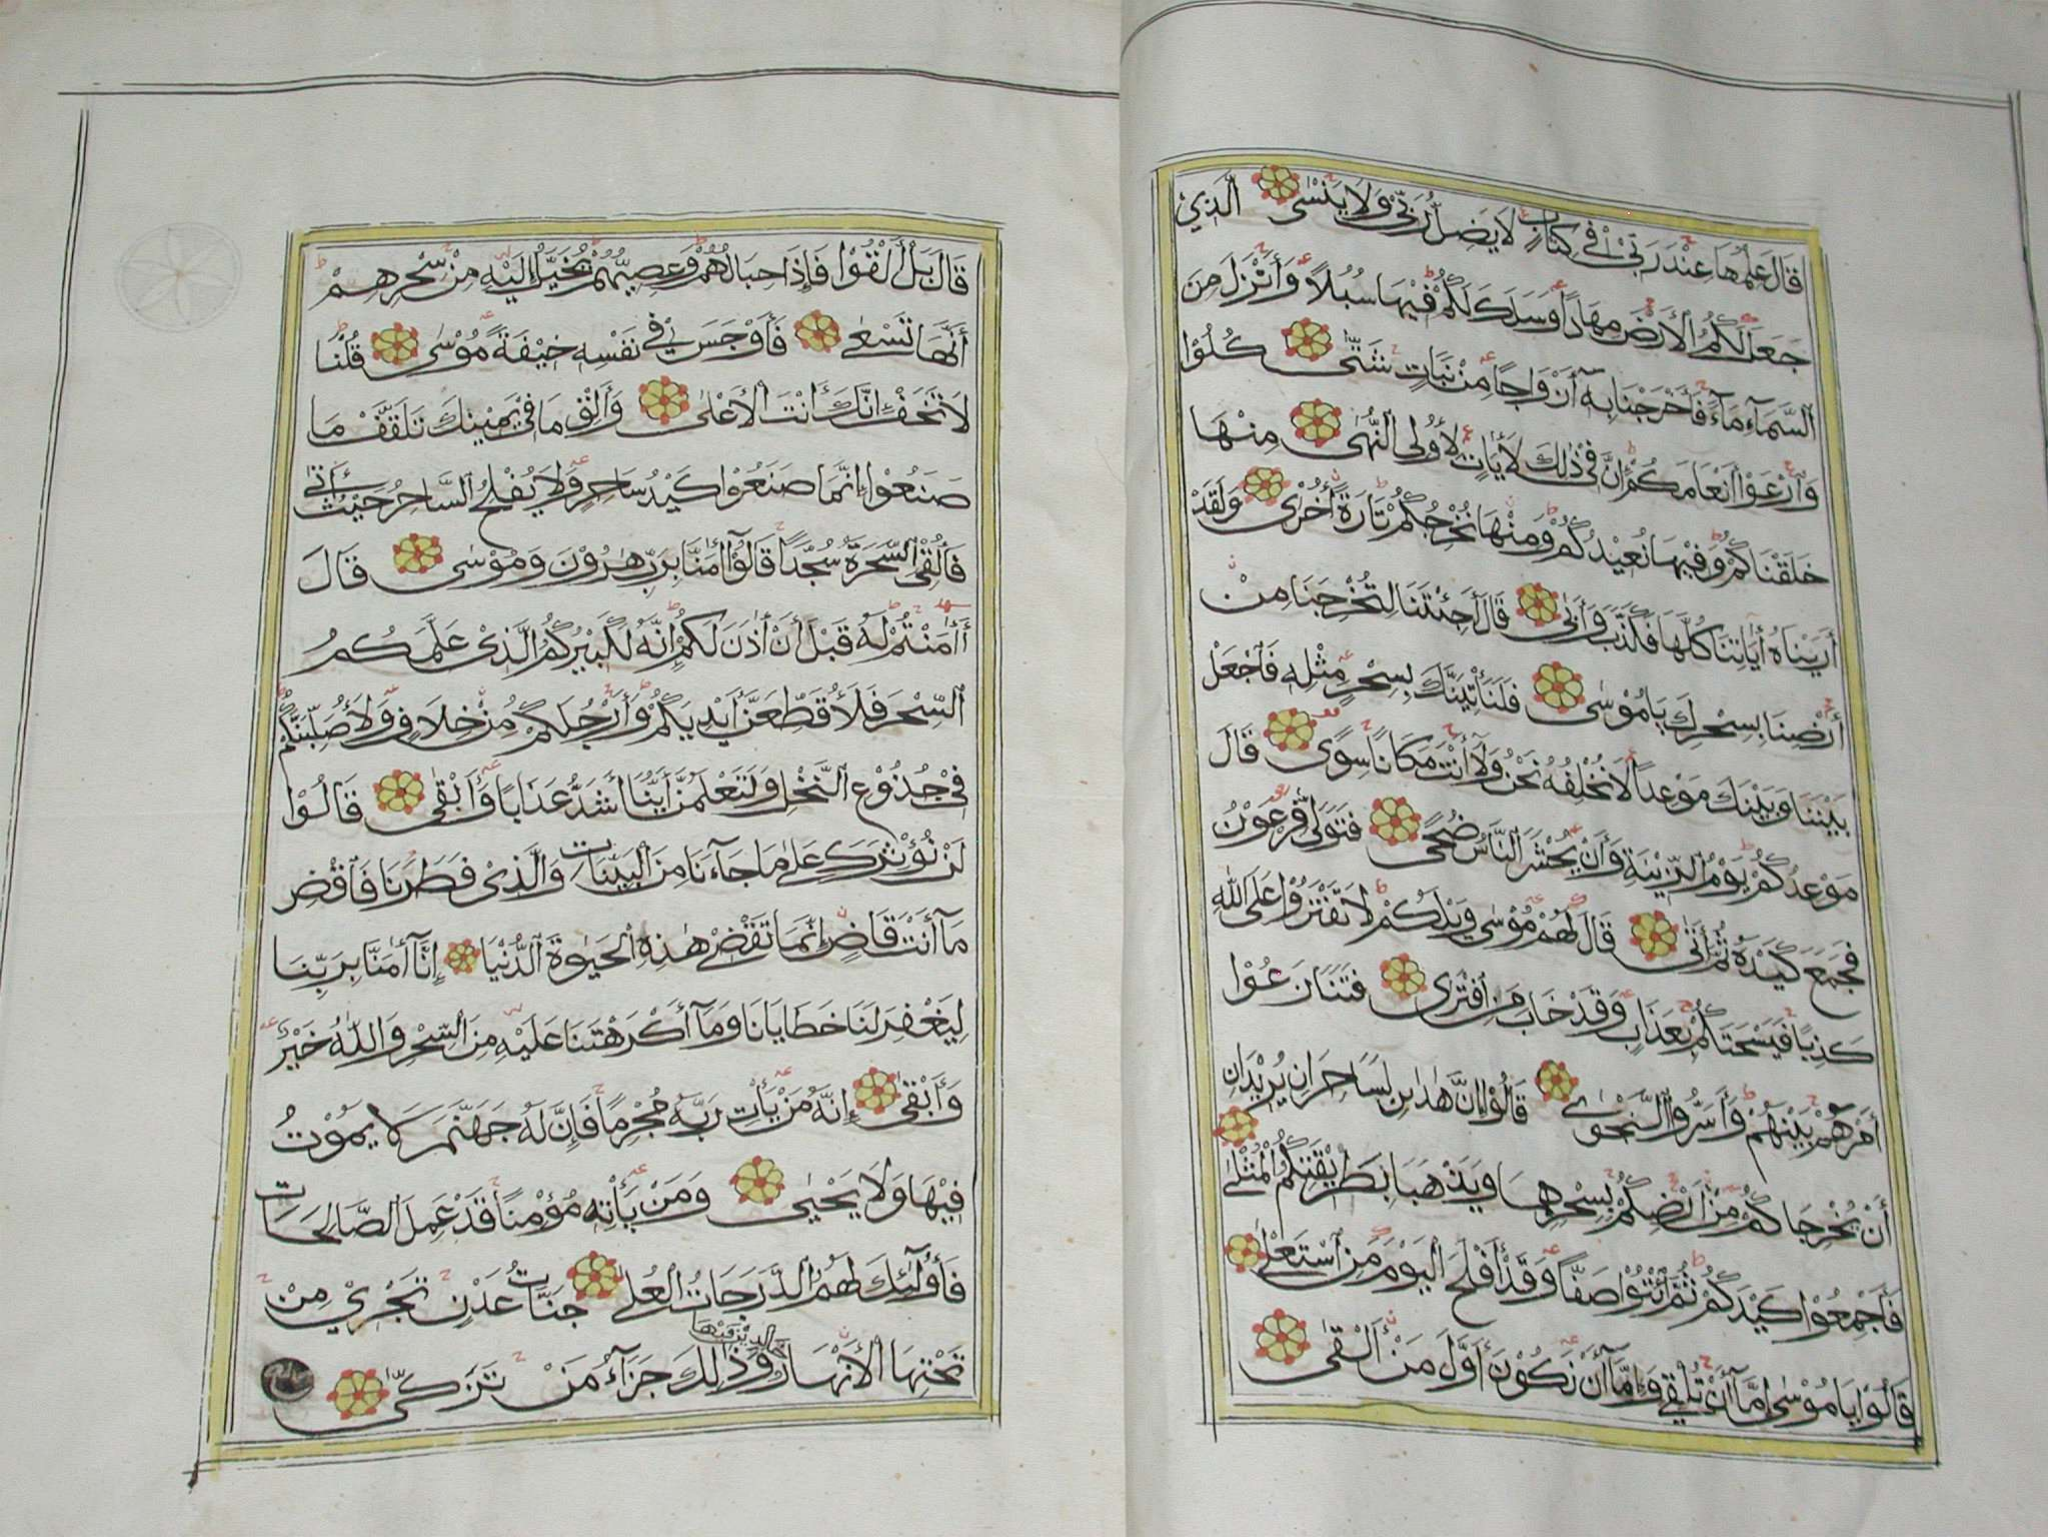 قَالَ عِلْمُهَا عِنْدَ رَبِّيْ فِيْ كِتَابٍ لَا يَضِلُّ رَبِّيْ وَلَا يَنْسٰى الَّذِيْ
جَعَلَ لَكُمُ الْأَرْضَ مِهَادًا وَسَلَكَ لَكُمْ فِيْهَا سُبُلًا وَأَنْزَلَ مِنَ
السَّمَآءِ مَآءً فَأَخْرَجْنَا بِهٖٓ أَزْوَاجًا مِنْ نَبَاتٍ شَتّٰى كُلُوْا
وَارْعَوْا أَنْعَامَكُمْ إِنَّ فِيْ ذٰلِكَ لَأٰيَاتٍ لِأُولِى النُّهٰى مِنْهَا
خَلَقْنَاكُمْ وَفِيْهَا نُعِيْدُكُمْ وَمِنْهَا نُخْرِجُكُمْ تَارَةً أُخْرٰى وَلَقَدْ
أَرَيْنَاهُ أٰيَاتِنَا كُلَّهَا فَكَذَّبَ وَأَبٰى قَالَ أَجِئْتَنَا لِتُخْرِجَنَا مِنْ
أَرْضِنَا بِسِحْرِكَ يَا مُوْسٰى فَلَنَأْتِيَنَّكَ بِسِحْرٍ مِثْلِهٖ فَاجْعَلْ
بَيْنَنَا وَبَيْنَكَ مَوْعِدًا لَا نُخْلِفُهٗ نَحْنُ وَلَآ أَنْتَ مَكَانًا سِوًى قَالَ
مَوْعِدُكُمْ يَوْمُ الزِّيْنَةِ وَأَنْ يُحْشَرَ النَّاسُ ضُحًى فَتَوَلّٰى فِرْعَوْنُ
فَجَمَعَ كَيْدَهٗ ثُمَّ أَتٰى قَالَ لَهُمْ مُوْسٰى وَيْلَكُمْ لَا تَفْتَرُوْا عَلَى اللّٰهِ
كَذِبًا فَيُسْحِتَكُمْ بِعَذَابٍ وَقَدْ خَابَ مَنِ افْتَرٰى فَتَنَازَعُوْا
أَمْرَهُمْ بَيْنَهُمْ وَأَسَرُّوا النَّجْوٰى قَالُوْا إِنْ هٰذٰنِ لَسَاحِرَانِ يُرِيْدَانِ
أَنْ يُخْرِجَاكُمْ مِنْ أَرْضِكُمْ بِسِحْرِهِمَا وَيَذْهَبَا بِطَرِيْقَتِكُمُ الْمُثْلٰى
فَأَجْمِعُوْا كَيْدَكُمْ ثُمَّ ائْتُوْا صَفًّا وَقَدْ أَفْلَحَ الْيَوْمَ مَنِ اسْتَعْلٰى
قَالُوْا يَا مُوْسٰى إِمَّآ أَنْ تُلْقِيَ وَإِمَّآ أَنْ نَكُوْنَ أَوَّلَ مَنْ أَلْقٰى
قَالَ بَلْ أَلْقُوْا فَإِذَا حِبَالُهُمْ وَعِصِيُّهُمْ يُخَيَّلُ إِلَيْهِ مِنْ سِحْرِهِمْ
أَنَّهَا تَسْعٰى فَأَوْجَسَ فِيْ نَفْسِهٖ خِيْفَةً مُوْسٰى قُلْنَا
لَا تَخَفْ إِنَّكَ أَنْتَ الْأَعْلٰى وَأَلْقِ مَا فِيْ يَمِيْنِكَ تَلَقَّفْ مَا
صَنَعُوْا إِنَّمَا صَنَعُوْا كَيْدُ سَاحِرٍ وَلَا يُفْلِحُ السَّاحِرُ حَيْثُ أَتٰى
فَأُلْقِيَ السَّحَرَةُ سُجَّدًا قَالُوْآ أٰمَنَّا بِرَبِّ هٰرُوْنَ وَمُوْسٰى قَالَ
أَأٰمَنْتُمْ لَهٗ قَبْلَ أَنْ أٰذَنَ لَكُمْ إِنَّهٗ لَكَبِيْرُكُمُ الَّذِيْ عَلَّمَكُمُ
السِّحْرَ فَلَأُقَطِّعَنَّ أَيْدِيَكُمْ وَأَرْجُلَكُمْ مِنْ خِلَافٍ وَلَأُصَلِّبَنَّكُمْ
فِيْ جُذُوْعِ النَّخْلِ وَلَتَعْلَمُنَّ أَيُّنَا أَشَدُّ عَذَابًا وَأَبْقٰى قَالُوْا
لَنْ نُؤْثِرَكَ عَلٰى مَا جَآءَنَا مِنَ الْبَيِّنَاتِ وَالَّذِيْ فَطَرَنَا فَاقْضِ
مَآ أَنْتَ قَاضٍ إِنَّمَا تَقْضِيْ هٰذِهِ الْحَيٰوةَ الدُّنْيَا إِنَّآ أٰمَنَّا بِرَبِّنَا
لِيَغْفِرَ لَنَا خَطَايَانَا وَمَآ أَكْرَهْتَنَا عَلَيْهِ مِنَ السِّحْرِ وَاللّٰهُ خَيْرٌ
وَأَبْقٰى إِنَّهٗ مَنْ يَأْتِ رَبَّهٗ مُجْرِمًا فَإِنَّ لَهٗ جَهَنَّمَ لَا يَمُوْتُ
فِيْهَا وَلَا يَحْيٰى وَمَنْ يَأْتِهٖ مُؤْمِنًا قَدْ عَمِلَ الصَّالِحَاتِ
فَأُولٰٓئِكَ لَهُمُ الدَّرَجَاتُ الْعُلٰى جَنَّاتُ عَدْنٍ تَجْرِيْ مِنْ
تَحْتِهَا الْأَنْهَارُ خَالِدِيْنَ فِيْهَا وَذٰلِكَ جَزَآءُ مَنْ تَزَكّٰى